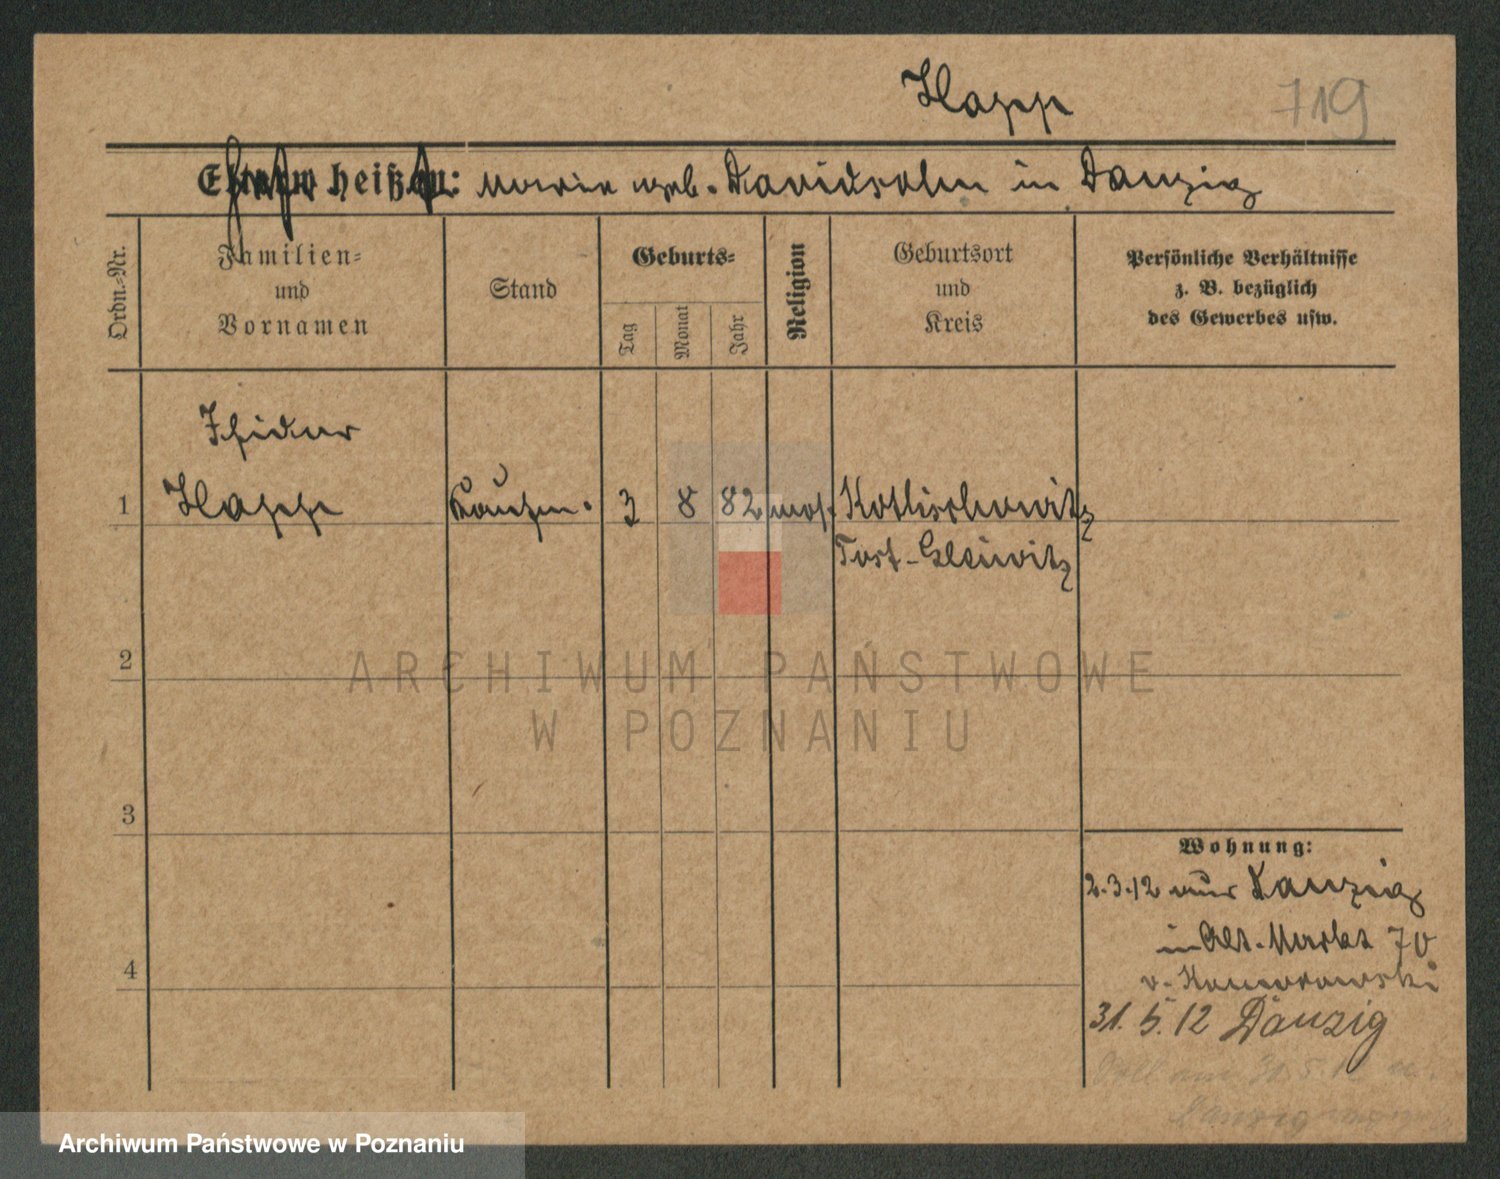 Happ
719
Eltern heißen: Marie geb. Davidsohn in Danzig
Ordn.-Nr.
Familien-
und
Vornamen
Stand
Geburts-
Tag
Monat
Jahr
Religion
Geburtsort
und
Kreis
Persönliche Verhältnisse
z. B. bezüglich
des Gewerbes usw.
Isidor
1 Happ Kaufm. 3 8 82 mos. Kottlischowitz
Tost-Gleiwitz
2
3
4
Wohnung:
2.3.12 aus Danzig
in Alt. Markt 70
v. Komorowski
31.5.12 Danzig
31.5.12
Danzig
ARCHIWUM PAŃSTWOWE
W POZNANIU
Archiwum Państwowe w Poznaniu